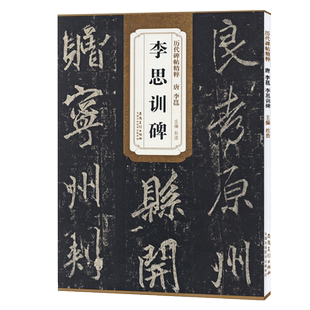 历代碑帖精粹 唐 李邕
李思训碑
主编 杜浩
良考原州
縣開
贈寧州刺
历代碑帖精粹 唐 李邕 李思训碑 主编 杜浩